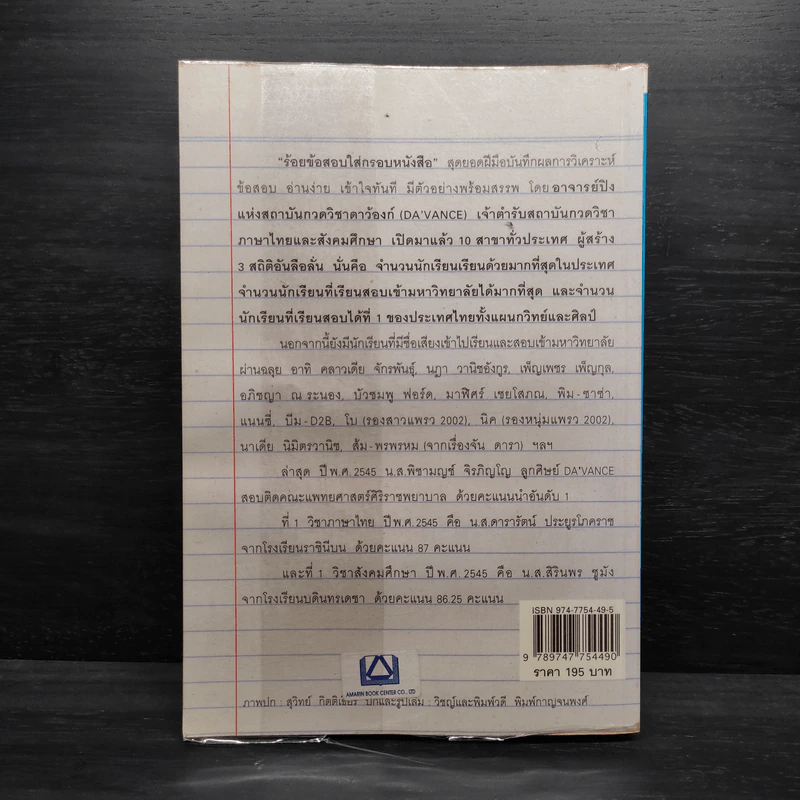 "ร้อยข้อสอบใส่กรอบหนังสือ" สุดยอดฝีมือบันทึกผลการวิเคราะห์
ข้อสอบ อ่านง่าย เข้าใจทันที มีตัวอย่างพร้อมสรรพ โดย อาจารย์ปิง
แห่งสถาบันกวดวิชาดาว้องก์ (DA'VANCE) เจ้าตำรับสถาบันกวดวิชา
ภาษาไทยและสังคมศึกษา เปิดมาแล้ว 10 สาขาทั่วประเทศ ผู้สร้าง
3 สถิติอันลือลั่น นั่นคือ จำนวนนักเรียนเรียนด้วยมากที่สุดในประเทศ
จำนวนนักเรียนที่เรียนสอบเข้ามหาวิทยาลัยได้มากที่สุด และจำนวน
นักเรียนที่เรียนสอบได้ที่ 1 ของประเทศไทยทั้งแผนกวิทย์และศิลป์
นอกจากนี้ยังมีนักเรียนที่มีชื่อเสียงเข้าไปเรียนและสอบเข้ามหาวิทยาลัย
ผ่านฉลุย อาทิ คลาวเดีย จักรพันธุ์, นฎา วานิชอังกูร, เพ็ญเพชร เพ็ญกุล,
อภิชญา ณ ระนอง, บัวชมพู ฟอร์ด, มาฬิศร์ เชยโสภณ, พิม - ซาซ่า,
แนนซี่, บีม - D2B, โบ (รองสาวแพรว 2002), นิค (รองหนุ่มแพรว 2002),
นาเดีย นิมิตรวานิช, ส้ม - พรพรหม (จากเรื่องจัน ดารา) ฯลฯ
ล่าสุด ปี พ.ศ. 2545 น.ส.พิชามญชุ์ จิรภิญโญ ลูกศิษย์ DA'VANCE
สอบติดคณะแพทยศาสตร์ศิริราชพยาบาล ด้วยคะแนนนำอันดับ 1
ที่ 1 วิชาภาษาไทย ปี พ.ศ. 2545 คือ น.ส.ดารารัตน์ ประยูรโภคราช
จากโรงเรียนราชินีบน ด้วยคะแนน 87 คะแนน
และที่ 1 วิชาสังคมศึกษา ปี พ.ศ. 2545 คือ น.ส.สิรินพร ชูมัง
จากโรงเรียนบดินทรเดชา ด้วยคะแนน 86.25 คะแนน
ISBN 974-7754-49-5
9 789747 754490
ราคา 195 บาท
AMARIN BOOK CENTER CO., LTD
ภาพปก : สุวิทย์ กิตติเธียร ปกและรูปเล่ม : วิชญ์และพิมพ์วดี พิมพ์กาญจนพงศ์